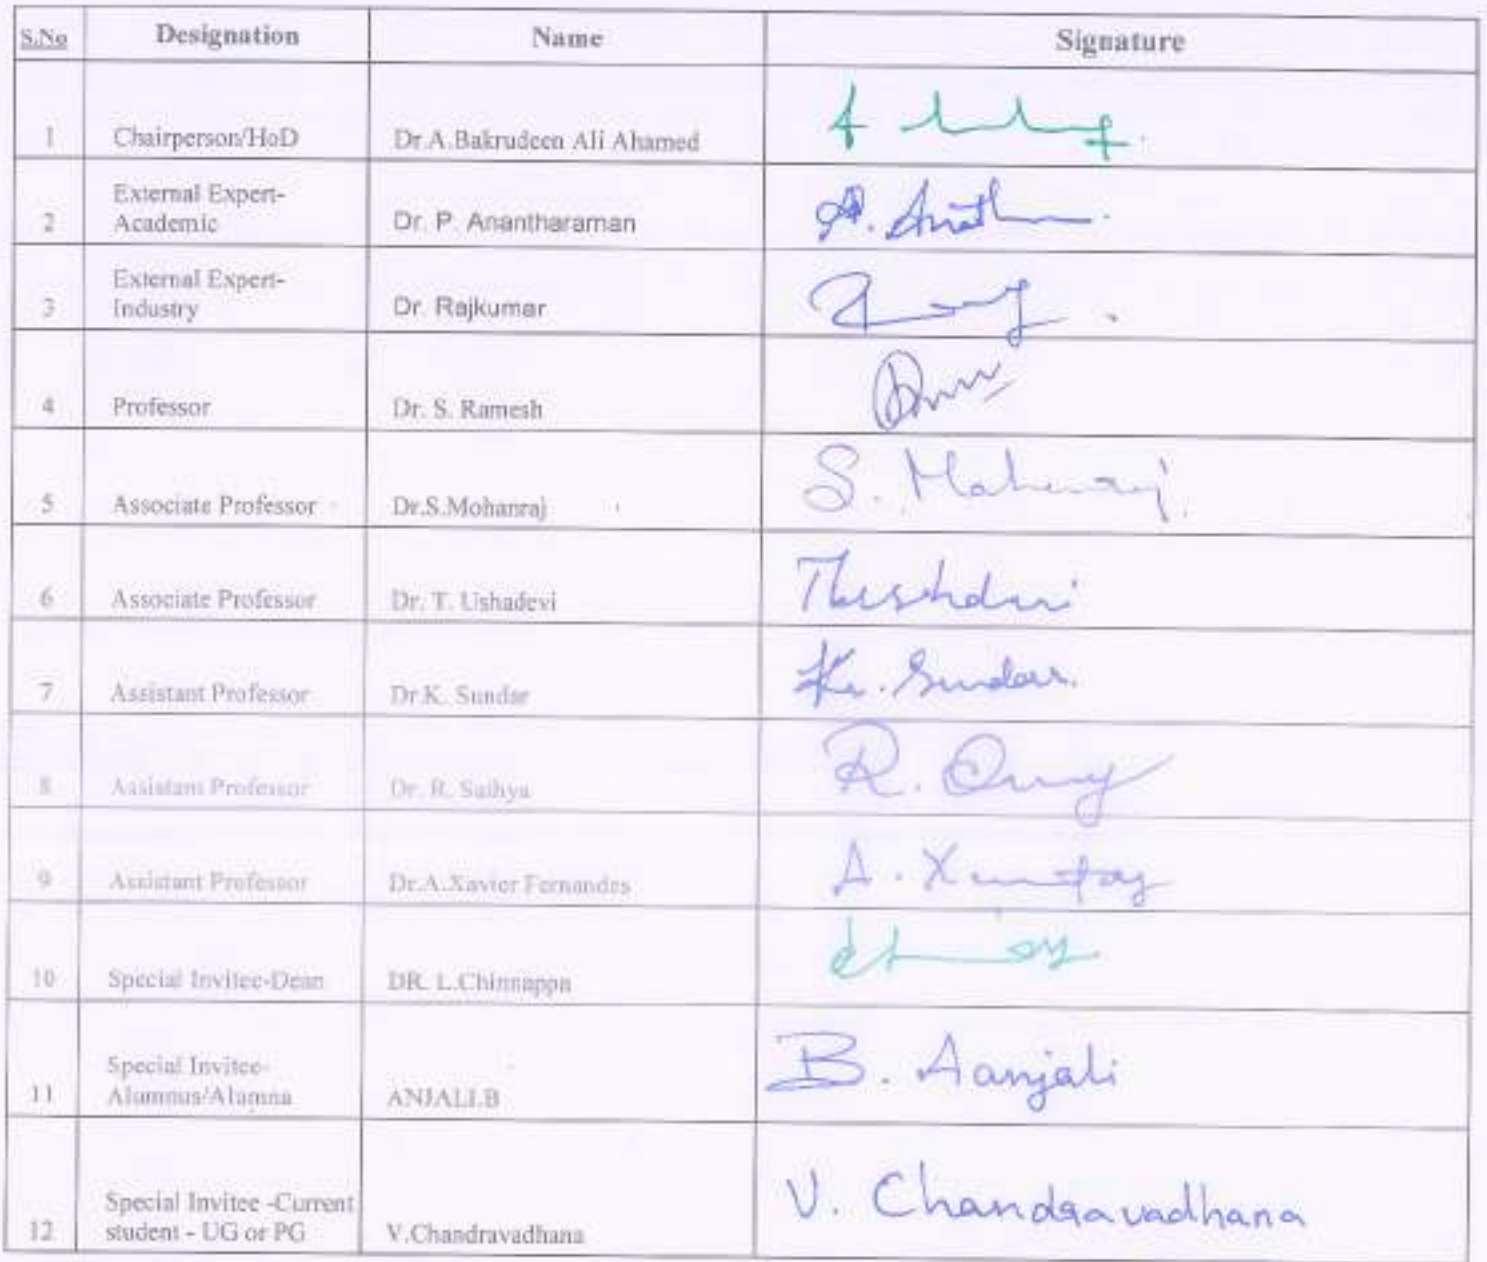 S.No Designation Name Signature
1 Chairperson/HoD Dr.A.Bakrudeen Ali Ahamed
External Expert-
2 Academic Dr. P. Anantharaman
External Expert-
3 Industry Dr. Rajkumar
4 Professor Dr. S. Ramesh
5 Associate Professor Dr.S.Mohanraj S. Mohanraj
6 Associate Professor Dr. T. Ushadevi
7 Assistant Professor Dr.K. Sundar K. Sundar
8 Assistant Professor Dr. R. Sathya R.
9 Assistant Professor Dr.A.Xavier Fernandes A.
10 Special Invitee-Dean DR. L.Chinnappa
Special Invitee-
11 Alumnus/Alumna ANJALI.B B. Aanjali
Special Invitee -Current
12 student - UG or PG V.Chandravadhana V. Chandravadhana